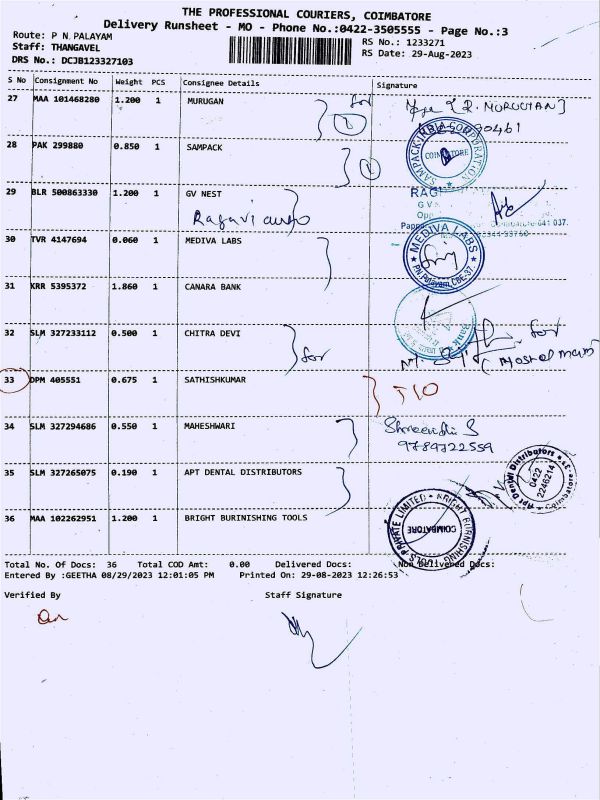 THE PROFESSIONAL COURIERS, COIMBATORE
Delivery Runsheet - MO - Phone No.:0422-3505555 - Page No.:3
Route: P N.PALAYAM
RS No.: 1233271
Staff: THANGAVEL
RS Date: 29-Aug-2023
DRS No.: DCJB123327103
S No Consignment No Weight PCS Consignee Details Signature
27 MAA 101468280 1.200 1 MURUGAN for [R. MURUGAN]
28 PAK 299880 0.850 1 SAMPACK
COIMBATORE
29 BLR 500863330 1.200 1 GV NEST
Ragavi auto
30 TVR 4147694 0.060 1 MEDIVA LABS
MEDIVA LABS
P.N.Palayam, CBE-37.
31 KRR 5395372 1.860 1 CANARA BANK
32 SLM 327233112 0.500 1 CHITRA DEVI
for
for
33 DPM 405551 0.675 1 SATHISHKUMAR
34 SLM 327294686 0.550 1 MAHESHWARI
9789722559
35 SLM 327265075 0.190 1 APT DENTAL DISTRIBUTORS
Apt Dental Distributors
0422
2246214
Coimbatore
36 MAA 102262951 1.200 1 BRIGHT BURINISHING TOOLS
BRIGHT BURNISHING TOOLS PRIVATE LIMITED
COIMBATORE
Total No. Of Docs: 36 Total COD Amt: 0.00 Delivered Docs: Non Delivered Docs:
Entered By :GEETHA 08/29/2023 12:01:05 PM Printed On: 29-08-2023 12:26:53
Verified By Staff Signature